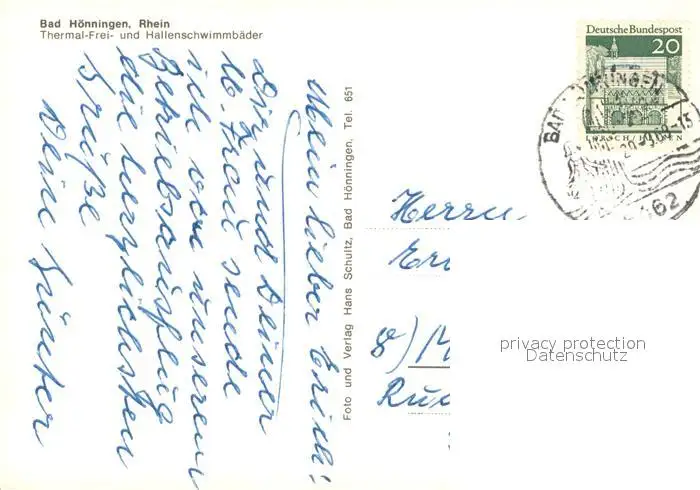 Bad Hönningen, Rhein
Thermal-Frei- und Hallenschwimmbäder
Mein lieber Erich!
Dir und Deiner
lb. Frau sende
ich von unserem
Betriebsausflug
die herzlichsten
Grüße
Deine Günter
Foto und Verlag Hans Schultz, Bad Hönningen, Tel. 651
Deutsche Bundespost
20
LORSCH/HESSEN
BAD HÖNNINGEN
462
Herrn
8)
privacy protection
Datenschutz